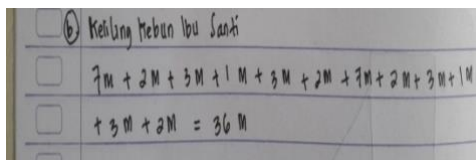 (b) Keliling Kebun Ibu Santi
7m + 2m + 3m + 1m + 3m + 2m + 7m + 2m + 3m + 1m
+ 3m + 2m = 36 m